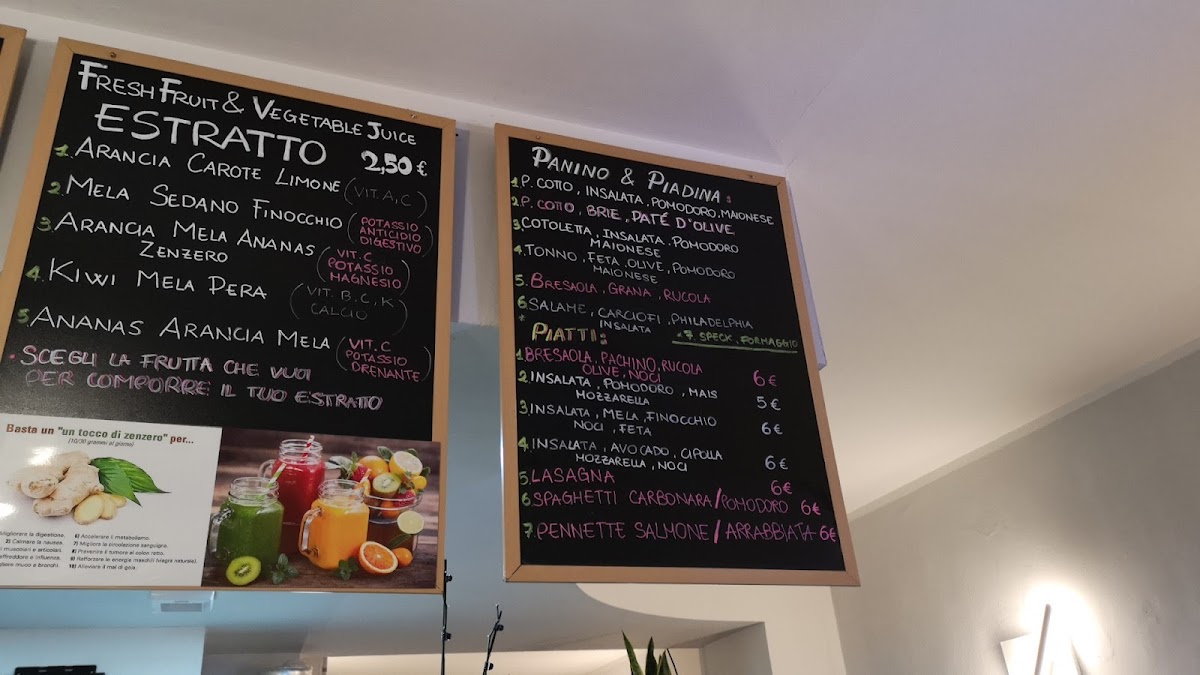 FRESH FRUIT & VEGETABLE JUICE
ESTRATTO 2,50 €
1. ARANCIA CAROTE LIMONE (VIT. A, C)
2. MELA SEDANO FINOCCHIO (POTASSIO
ANTICIDIO
DIGESTIVO)
3. ARANCIA MELA ANANAS
ZENZERO
(VIT. C
POTASSIO
MAGNESIO)
4. KIWI MELA PERA
(VIT. B, C, K
CALCIO)
5. ANANAS ARANCIA MELA
(VIT. C
POTASSIO
DRENANTE)
• SCEGLI LA FRUTTA CHE VUOI
PER COMPORRE IL TUO ESTRATTO
Basta un "un tocco di zenzero" per...
(10/30 grammi al giorno)
Migliorare la digestione.
2) Calmare la nausea.
i muscolari e articolari.
affreddore e influenza.
gliere muco e bronchi.
6) Accelerare il metabolismo.
7) Migliora la circolazione sanguigna.
8) Prevenire il tumore al colon retto.
9) Rafforzare le energie maschili (viagra naturale).
10) Alleviare il mal di gola.
PANINO & PIADINA:
1. P. COTTO, INSALATA, POMODORO, MAIONESE
2. P. COTTO, BRIE, PATÉ D'OLIVE
3. COTOLETTA, INSALATA, POMODORO
MAIONESE
4. TONNO, FETA, OLIVE, POMODORO
MAIONESE
5. BRESAOLA, GRANA, RUCOLA
6. SALAME, CARCIOFI, PHILADELPHIA
INSALATA
7. SPECK, FORMAGGIO
PIATTI:
1. BRESAOLA, PACHINO, RUCOLA
OLIVE, NOCI 6€
2. INSALATA, POMODORO, MAIS
MOZZARELLA 5€
3. INSALATA, MELA, FINOCCHIO
NOCI, FETA 6€
4. INSALATA, AVOCADO, CIPOLLA
MOZZARELLA, NOCI 6€
5. LASAGNA 6€
6 SPAGHETTI CARBONARA/POMODORO 6€
7. PENNETTE SALMONE/ARRABBIATA 6€